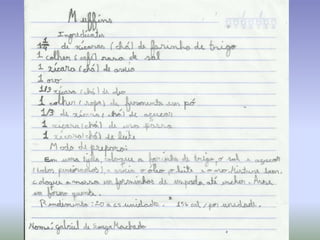 Muffins
Ingredientes
1 1/4 de xícaras (chá) de farinha de trigo
1 colher (café) rasa de sal
1 xícara (chá) de aveia
1 ovo
1/3 xícara (chá) de óleo
1 colher (sopa) de fermento em pó
1/3 de xícara (chá) de açucar
1 xícara (chá) de uva passa
1 xícara (chá) de leite
Modo de preparo:
Em uma tigela, coloque a farinha de trigo, o sal e açucar
(todos peneirados) a aveia o óleo o leite e o ovo. Misture bem,
coloque a massa em forminhas de empada até encher. Asse
em forno quente.
Rendimento: 20 a 25 unidade. * 154 cal, por unidade.
Nome: Gabriel de Machado